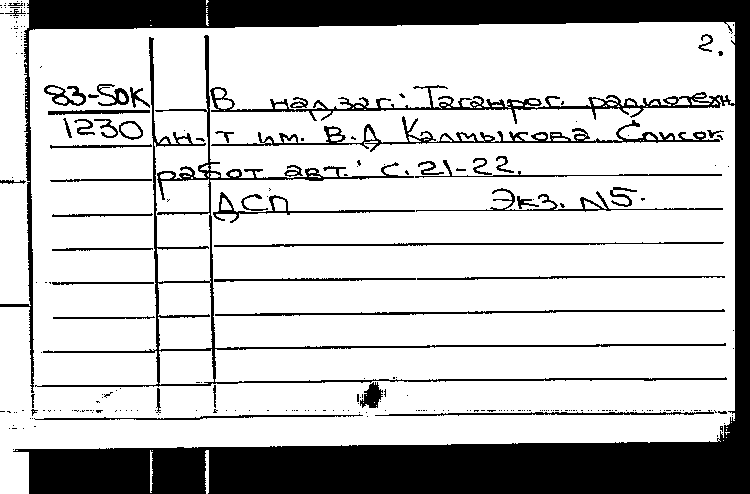 2.
83-5ОК В надзаг.: Таганрог. радиотехн.
1230 ин-т им. В.Д Калмыкова. Список
работ авт.: с. 21-22.
ДСП Экз. N5.